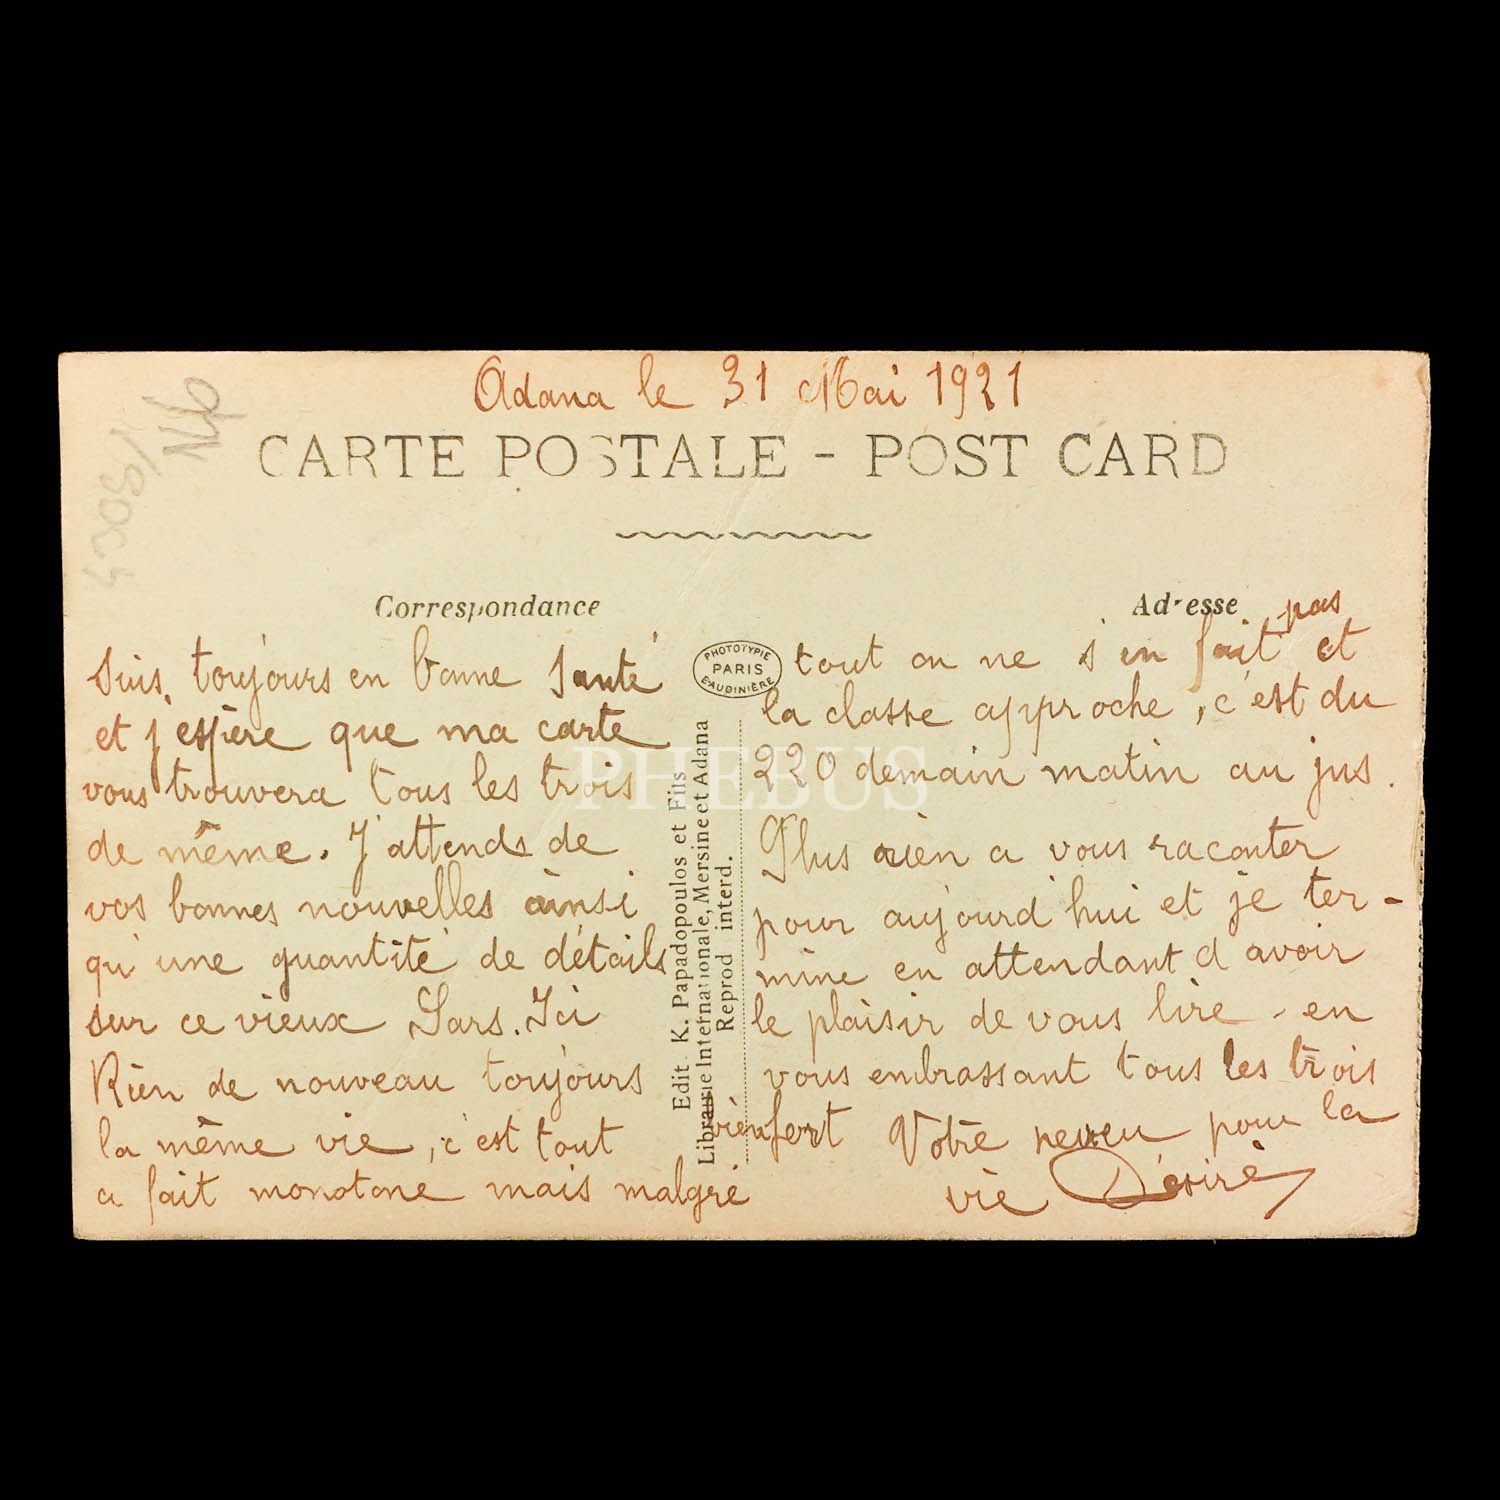 Adana le 31 Mai 1921
CARTE POSTALE - POST CARD
Correspondance
Suis, toujours en bonne Santé
et j'espère que ma carte
vous trouvera tous les trois
de même. J'attends de
vos bonnes nouvelles ainsi
qu'une quantité de détails
sur ce vieux Sars. Ici
Rien de nouveau toujours
la même vie, c'est tout
a fait monotone mais malgré
PHOTOTYPIE
PARIS
BAUDINIÈRE
Edit. K. Papadopoulos et Fils
Librairie Internationale, Mersine et Adana
Reprod interd.
Adresse
tout on ne s'en fait pas et
la classe approche, c'est du
220 demain matin au jus.
Plus rien a vous raconter
pour aujourd'hui et je ter-
mine en attendant d'avoir
le plaisir de vous lire - en
vous embrassant tous les trois
bien fort Votre neveu pour la
vie Désiré
PHEBUS